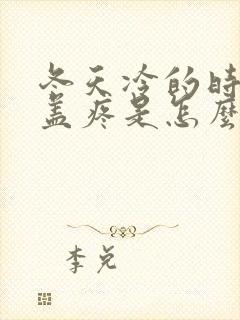 冬天冷的时
盖疼是怎麼
李兑